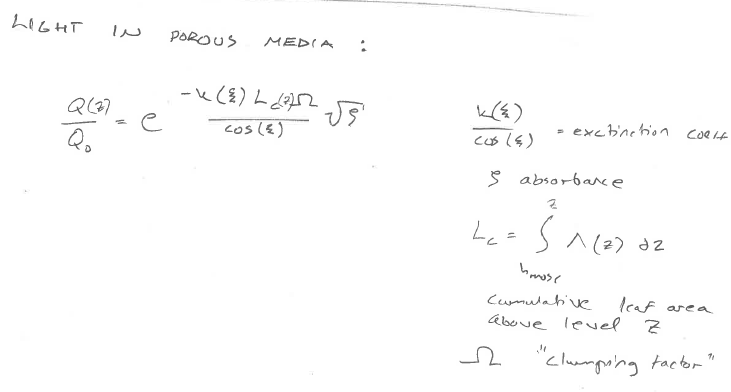 LIGHT IN POROUS MEDIA :
Q(z)/Q₀ = e^(-k(ξ) L_c(z)Ω / cos(ξ) √ς)
k(ξ)/cos(ξ) = exctinction coeff
ς absorbance
L_c = ∫ Λ(z) dz
z
cumulative leaf area
above level z
Ω "clumping factor"